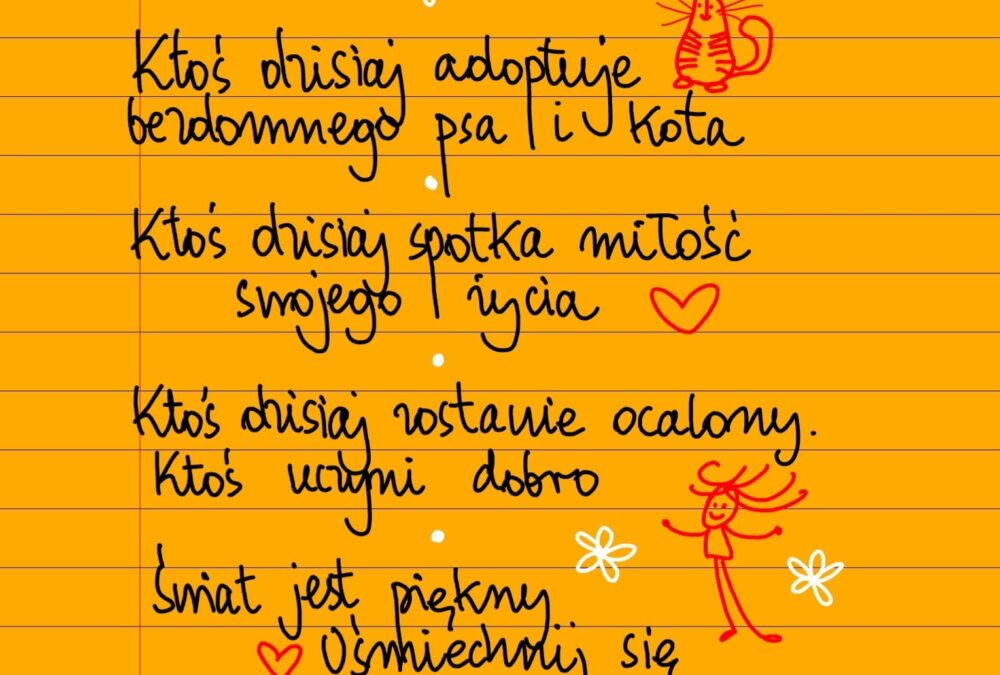 Ktoś dzisiaj adoptuje
bezdomnego psa i kota
Ktoś dzisiaj spotka miłość
swojego życia
Ktoś dzisiaj zostanie ocalony.
Ktoś uczyni dobro
Świat jest piękny
Uśmiechnij się